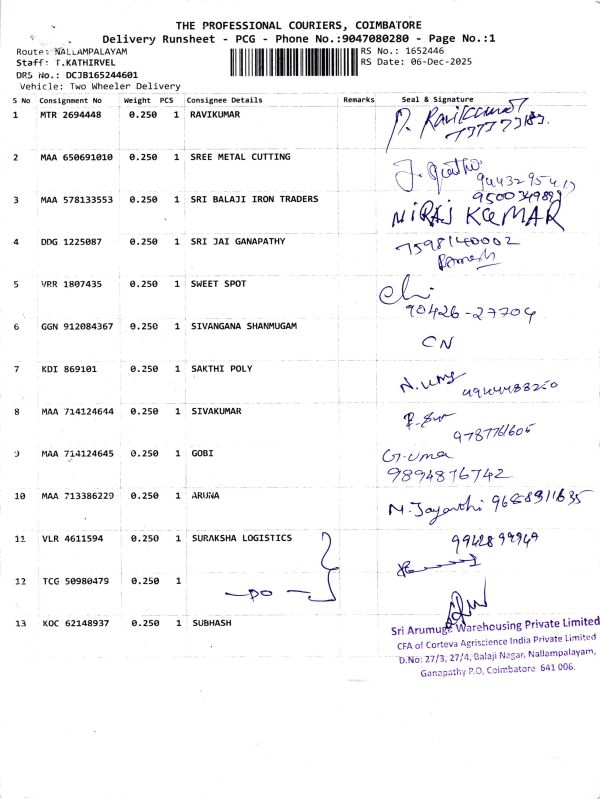 THE PROFESSIONAL COURIERS, COIMBATORE
Delivery Runsheet - PCG - Phone No.:9047080280 - Page No.:1
Route: NALLAMPALAYAM
RS No.: 1652446
Staff: T.KATHIRVEL
RS Date: 06-Dec-2025
DRS No.: DCJB165244601
Vehicle: Two Wheeler Delivery
S No Consignment No Weight PCS Consignee Details Remarks Seal & Signature
1 MTR 2694448 0.250 1 RAVIKUMAR
2 MAA 650691010 0.250 1 SREE METAL CUTTING
3 MAA 578133553 0.250 1 SRI BALAJI IRON TRADERS NIRAJ KUMAR
4 DDG 1225087 0.250 1 SRI JAI GANAPATHY 7598140002
Ramesh
5 VRR 1807435 0.250 1 SWEET SPOT
90426-27704
6 GGN 912084367 0.250 1 SIVANGANA SHANMUGAM
CN
7 KDI 869101 0.250 1 SAKTHI POLY
8 MAA 714124644 0.250 1 SIVAKUMAR
9 MAA 714124645 0.250 1 GOBI G.uma
9894876742
10 MAA 713386229 0.250 1 ARUNA N. Jayanthi
11 VLR 4611594 0.250 1 SURAKSHA LOGISTICS
12 TCG 50980479 0.250 1 -DO-
13 KOC 62148937 0.250 1 SUBHASH
Sri Arumuga Warehousing Private Limited
CFA of Corteva Agriscience India Private Limited
D.No: 27/3, 27/4, Balaji Nagar, Nallampalayam,
Ganapathy P.O, Coimbatore 641 006.